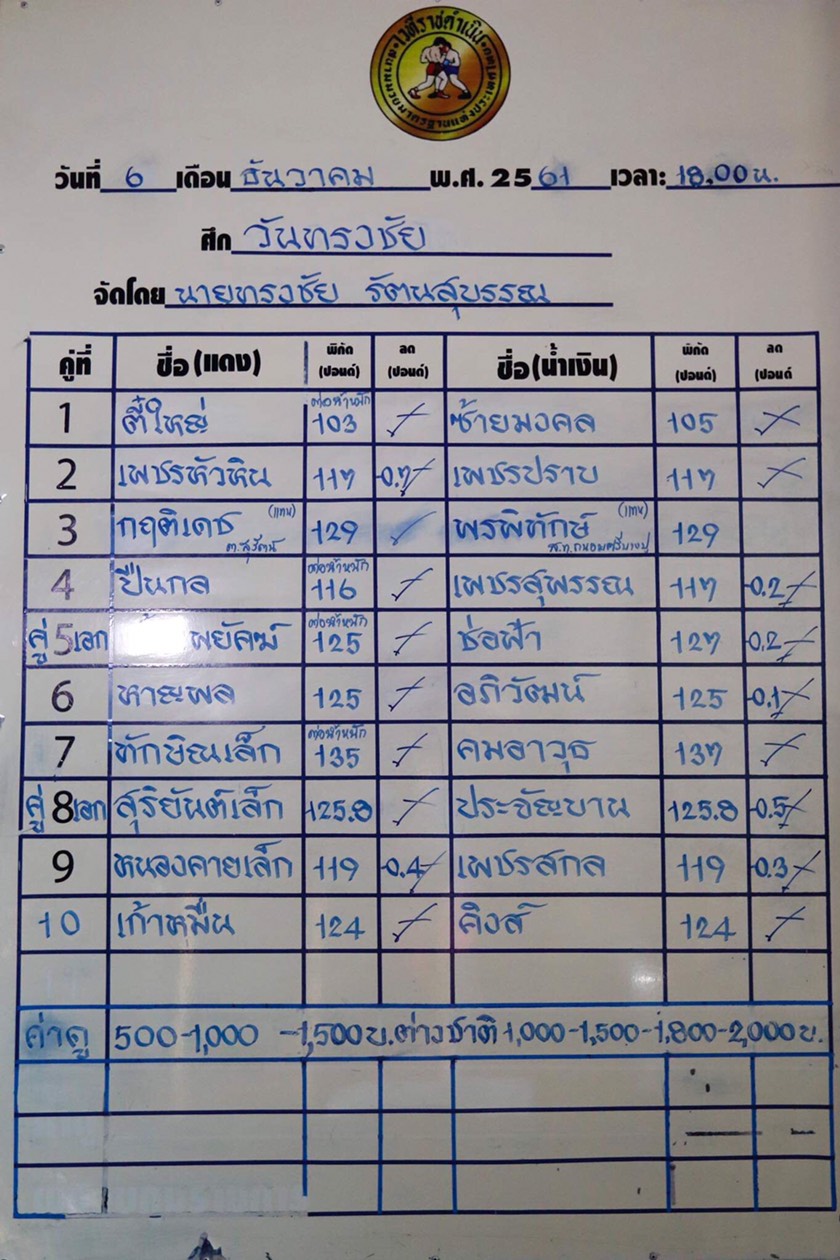 เวทีราชดำเนิน
สนามมวยมาตรฐานแห่งประเทศไทย
วันที่ 6 เดือน ธันวาคม พ.ศ. 2561 เวลา: 18.00 น.
ศึก วันทรงชัย
จัดโดย นายทรงชัย รัตนสุบรรณ
คู่ที่ ชื่อ(แดง) พิกัด (ปอนด์) ลด (ปอนด์) ชื่อ(น้ำเงิน) พิกัด (ปอนด์) ลด (ปอนด์
1 ตี๋ใหญ่ ต่อน้ำหนัก 103 ซ้ายมงคล 105
2 เพชรหัวหิน 117 -0.7 เพชรปราบ 117
3 กฤติเดช (แทน) ต.สุรัตน์ 129 พรพิทักษ์ (แทน) 129
4 ปืนกล ต่อน้ำหนัก 116 เพชรสุพรรณ 117 -0.2
คู่ 5 เอก พยัคฆ์ ต่อน้ำหนัก 125 ช่อฟ้า 127 -0.2
6 หาญพล 125 อภิวัฒน์ 125 -0.1
7 ทักษิณเล็ก ต่อน้ำหนัก 135 คมอาวุธ 137
คู่ 8 เอก สุริยันต์เล็ก 125.8 ประจัญบาน 125.8 -0.5
9 หนองคายเล็ก 119 -0.4 เพชรสกล 119 -0.3
10 เก้าหมื่น 124 คิงส์ 124
ค่าดู 500-1,000 -1,500 บ. ต่างชาติ 1,000-1,500-1,800-2,000 บ.